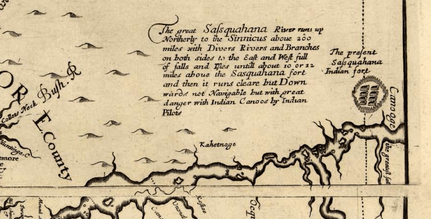 The great Sassquahana River runs up
Northerly to the Sinnicus above 200
miles with Divers Rivers and Branches
on both sides to the East and West full
of falls and Iles untill about 10 or 12
miles above the Sasquahana fort
and then it runs cleare but Down
wards not Navigable but with great
danger with Indian Canoos by Indian
Pilots
The present
Sassquahana
Indian fort
Bush R
ORE
County
Kahetnage
Canooge